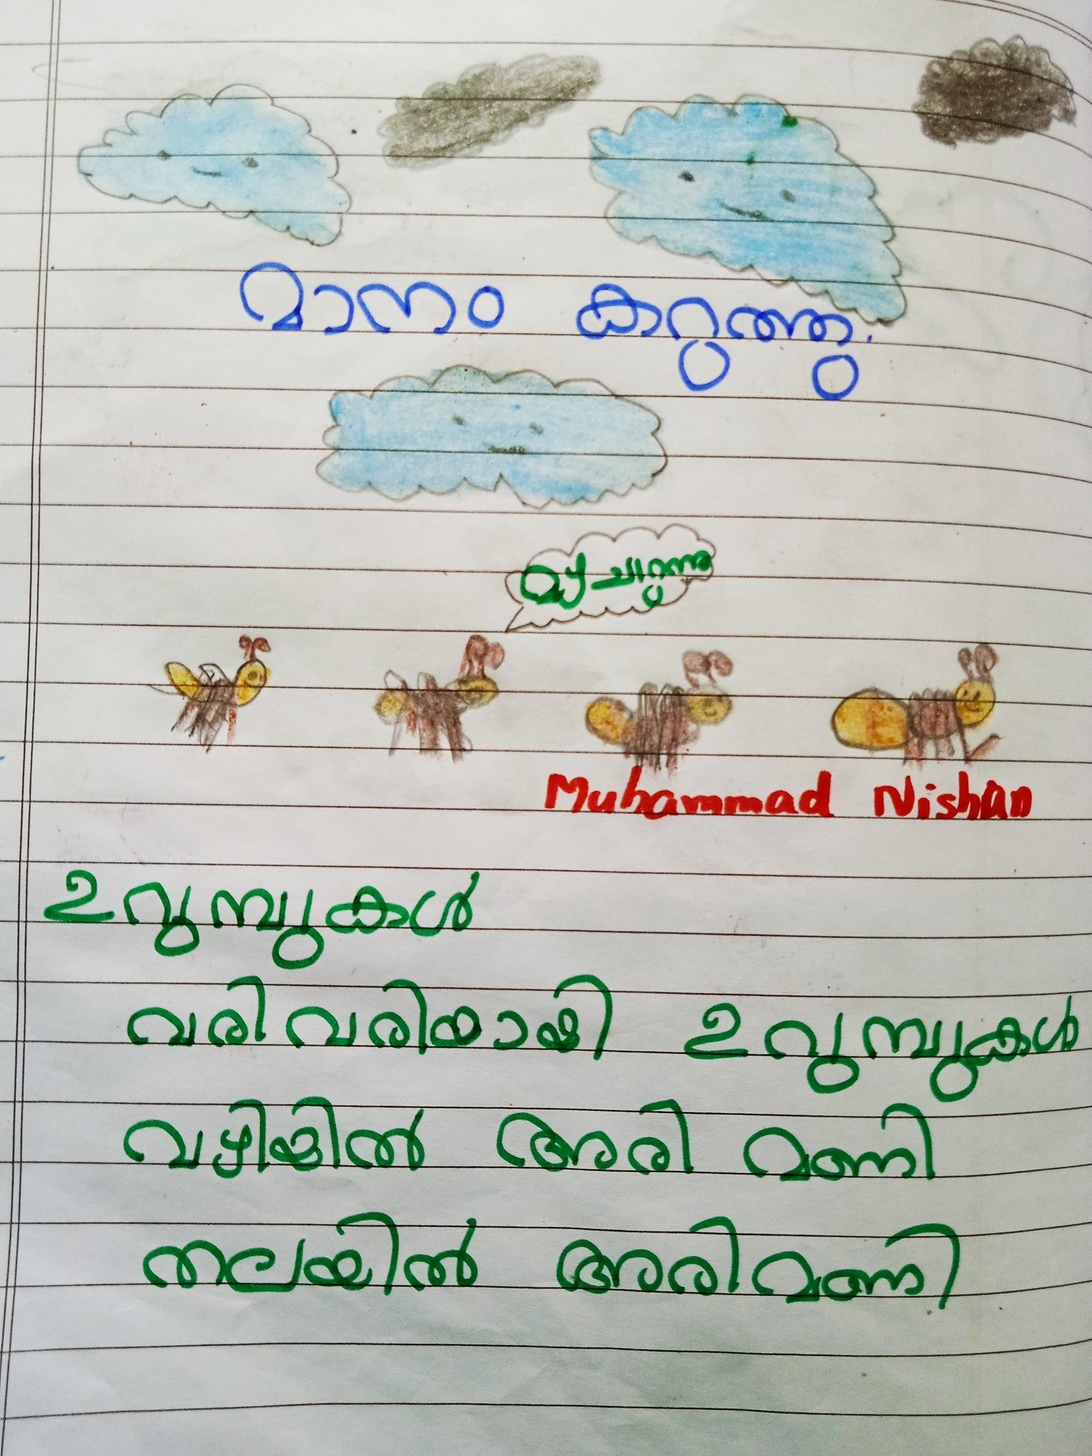 മാനം കറുത്തു.
മഴ ചാറുന്നു
Muhammad Nishan
ഉറുമ്പുകൾ
വരിവരിയായി ഉറുമ്പുകൾ
വഴിയിൽ അരി മണി
തലയിൽ അരിമണി